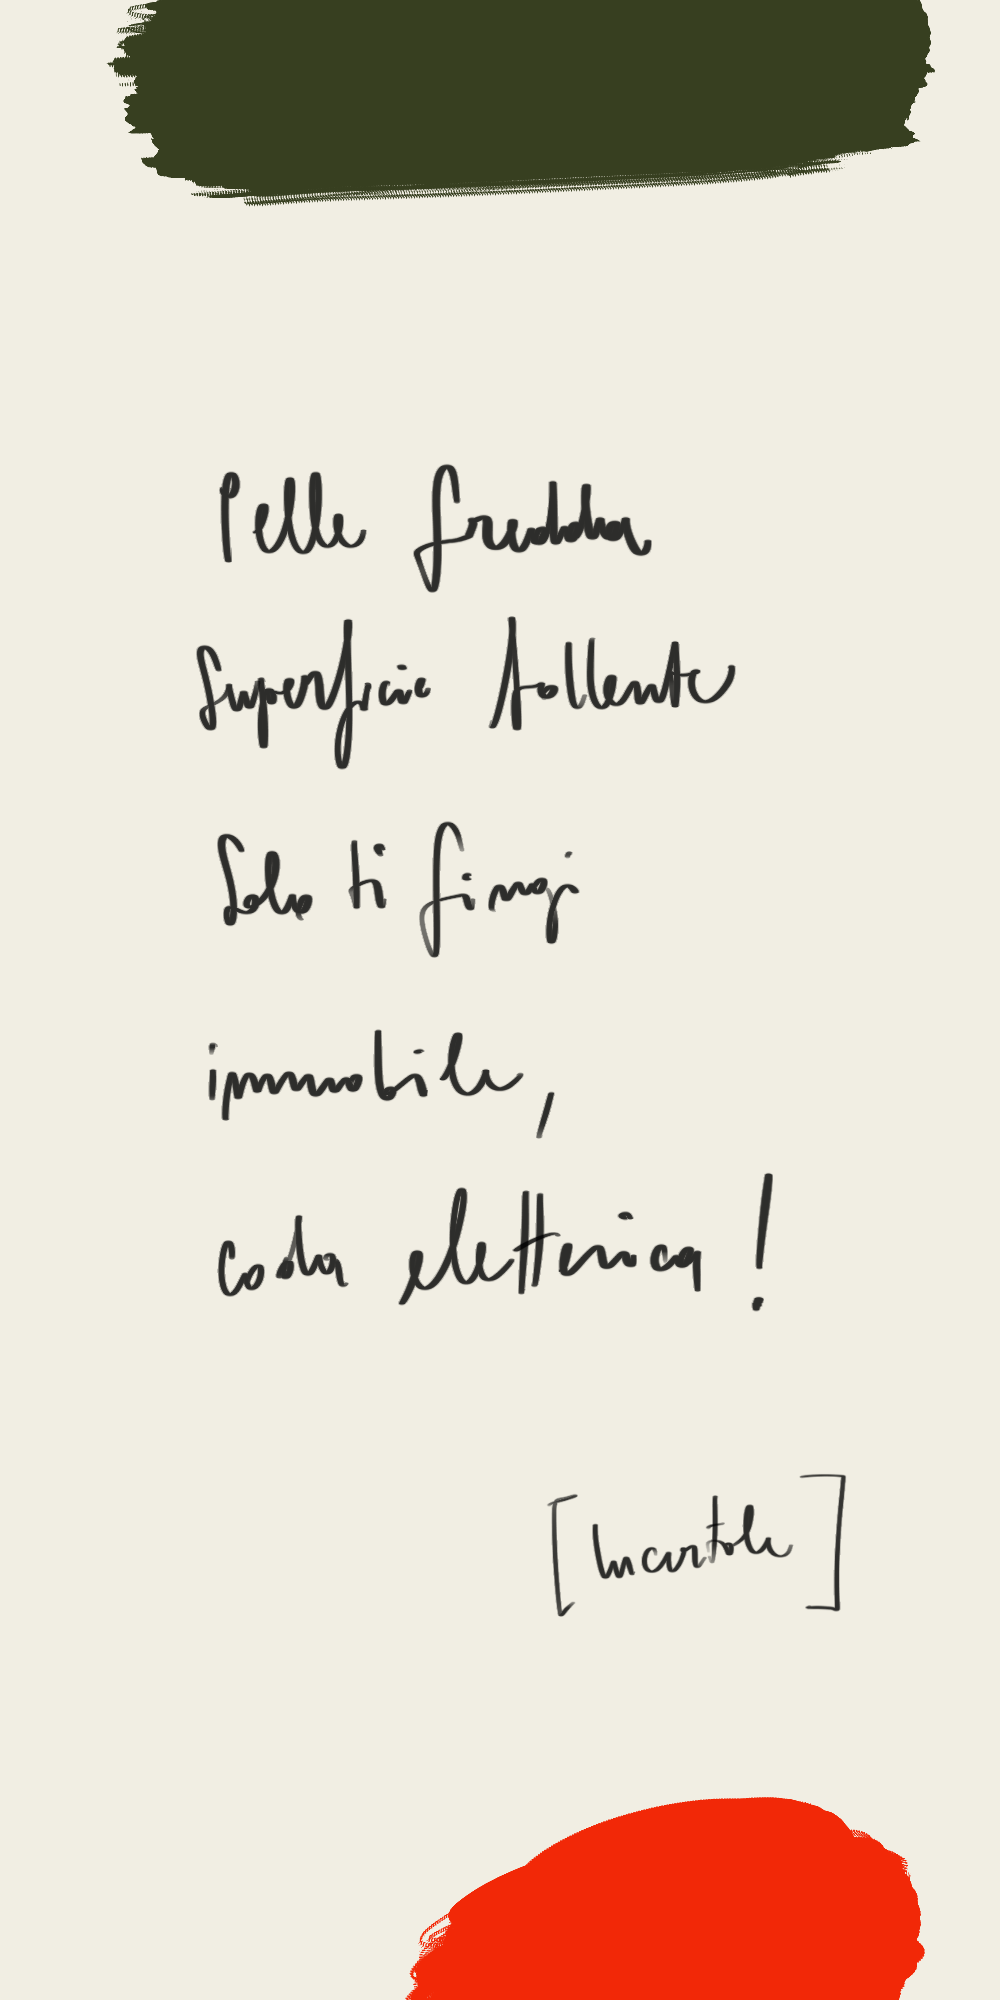 Pelle fredda
Superficie bollente
Solo ti fingi
immobile,
coda elettrica!